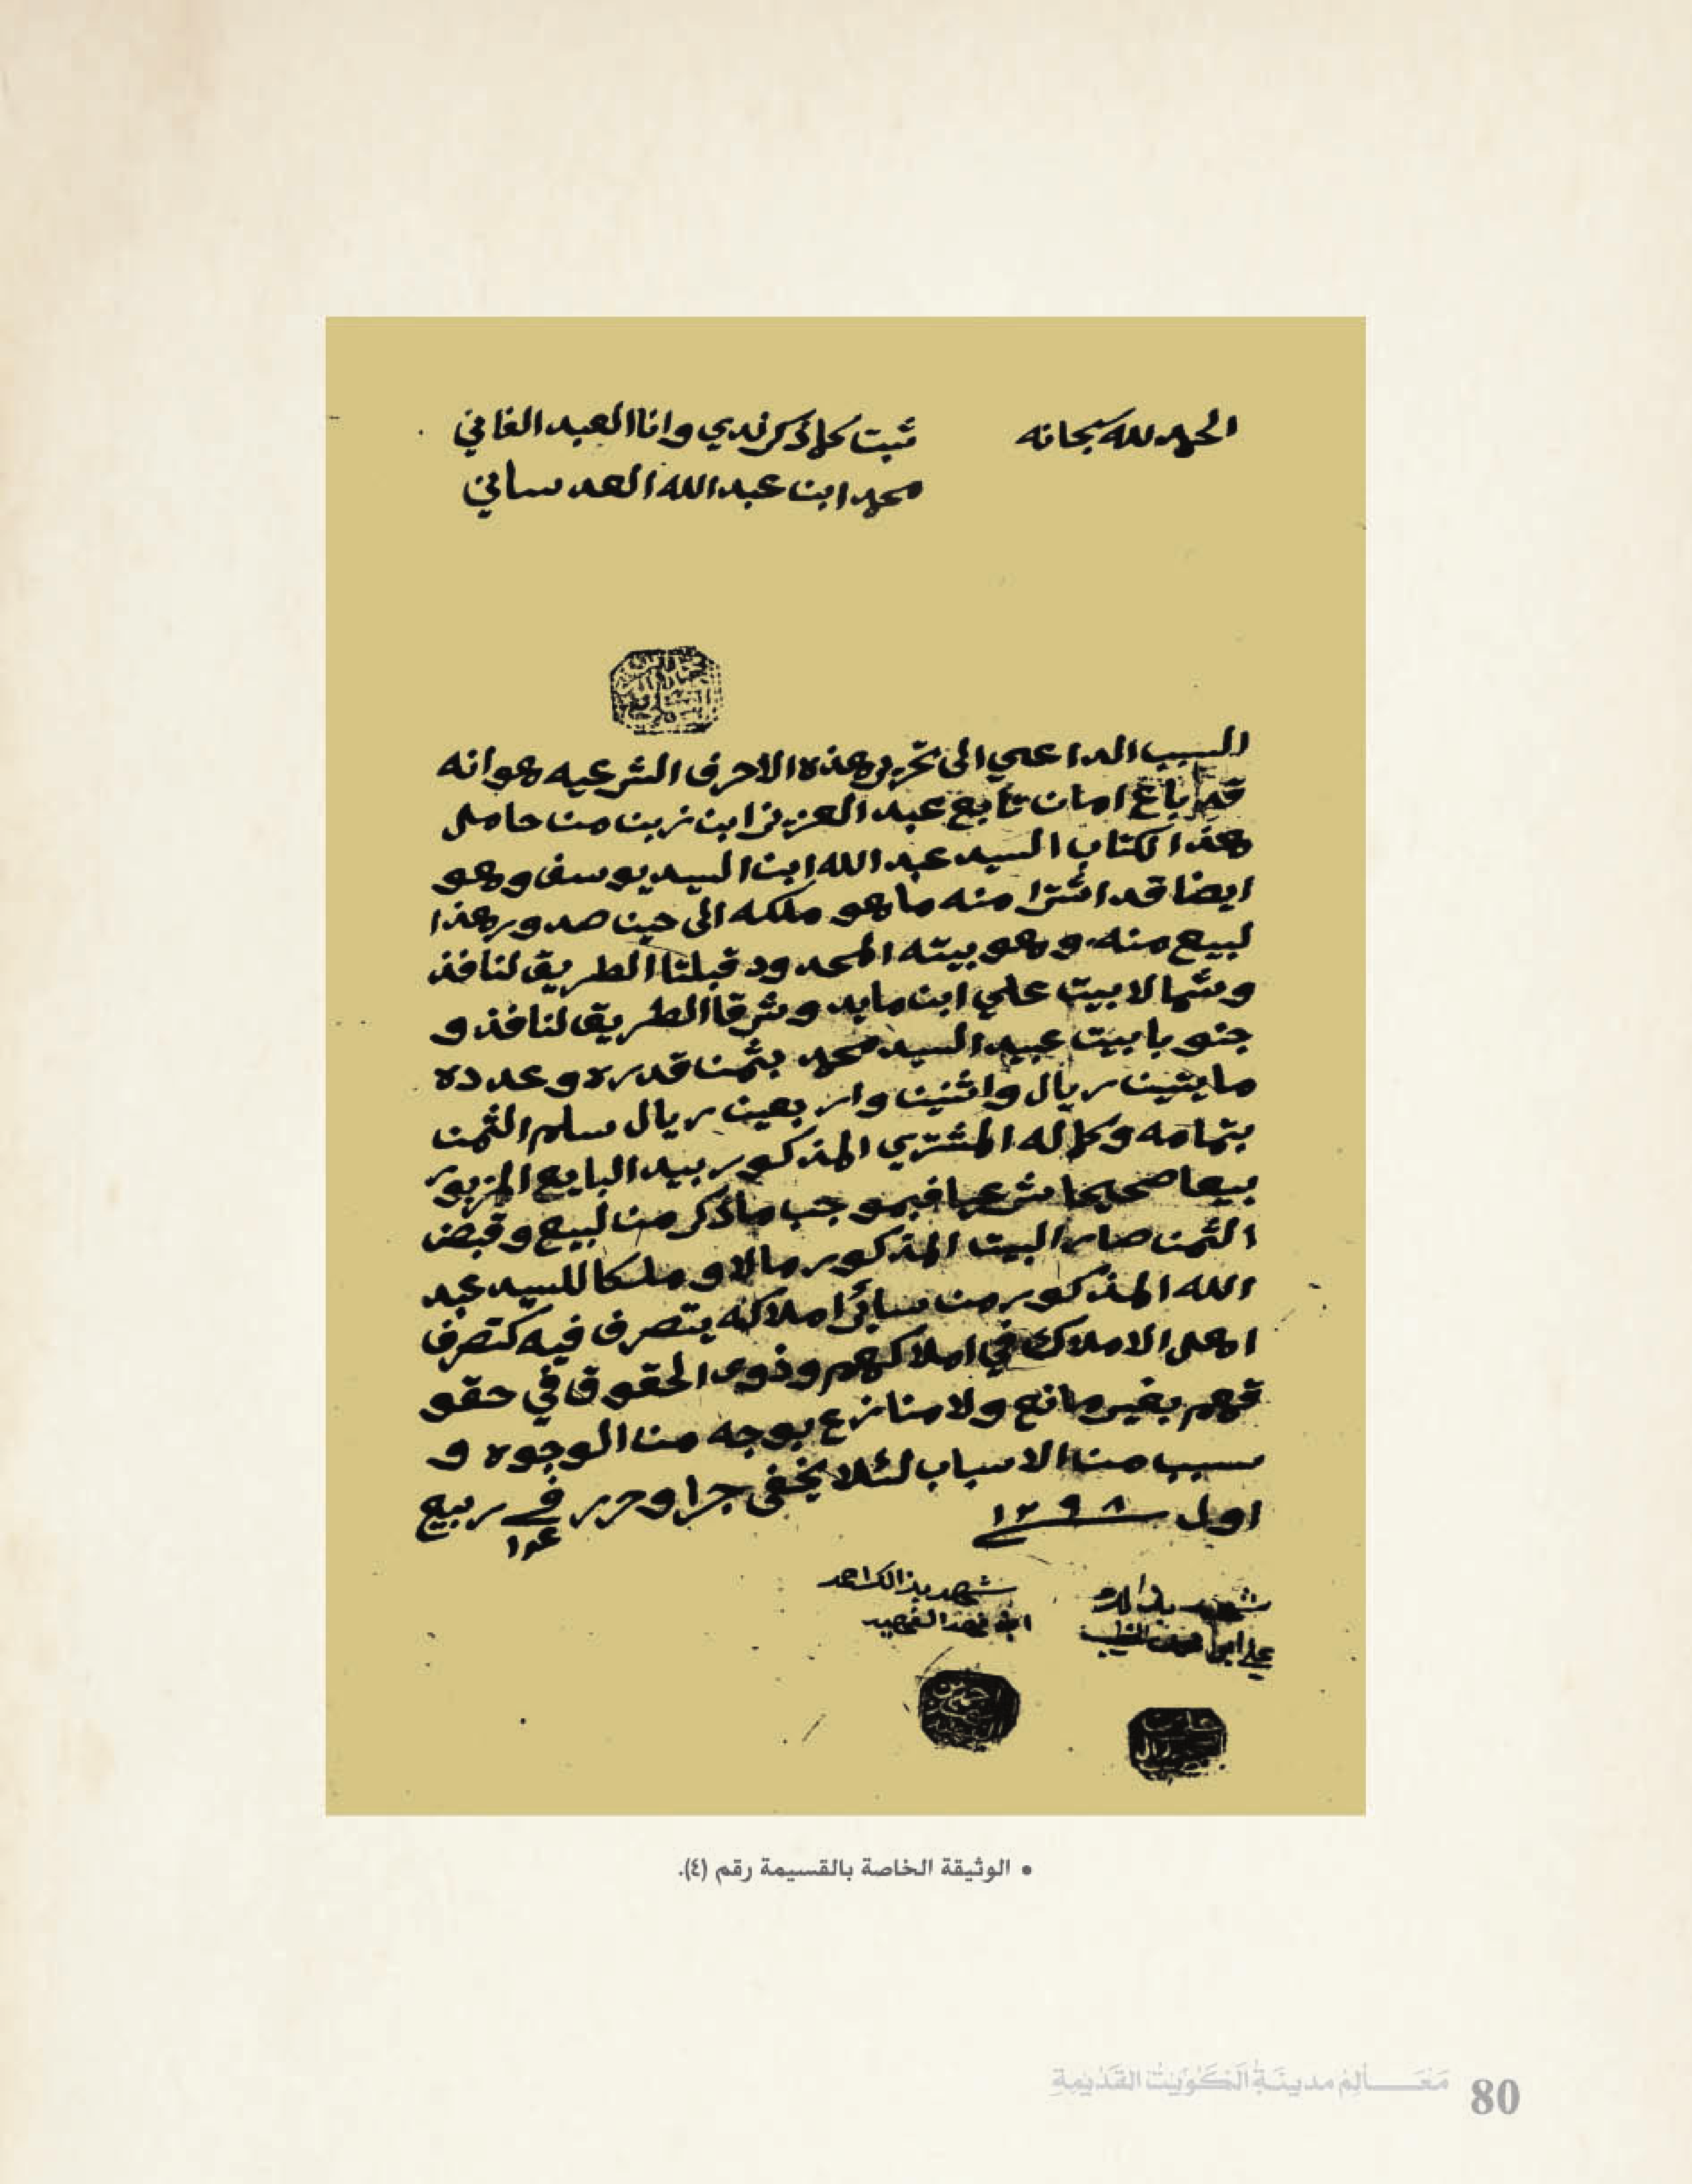 الحمد لله سبحانه
ثبت كلما ذكر لدي وانا العبد الفاني
محمد ابن عبدالله العدساني
السبب الداعي الى تحرير هذه الاحرف الشرعيه هوانه
قد باع امان تابع عبد العزيز ابن زبن من حامل
هذا الكتاب السيد عبد الله ابن السيد يوسف وهو
ايضا قد اشترا منه ما هو ملكه الى حين صدور هذا
لبيع منه وهو بيته المحدود قبلتا الطريق لنافذ
وشمالا بيت علي ابن مايد وشرقا الطريق لنافذ و
جنوبا بيت عبيد السيد محمد بثمن قدره وعدده
مايتين ريال واثنين واربعين ريال سلم الثمن
بتمامه وكماله المشتري المذكور بيد البايع المزبور
بيعا صحيحا شرعيا فبموجب ما ذكر من لبيع وقبض
الثمن صار البيت المذكور مالا وملكا للسيد عبد
الله المذكور من سائر املاكه يتصرف فيه كتصرف
اهل الاملاك في املاكهم وذوى الحقوق في حقو
قهم بغير مانع ولا منازع بوجه من الوجوه و
سبب من الاسباب لئلا يخفى جرا وحرر في ربيع
اول ١٢٩٨
شهد بذالك
علي ابن
شهد بذالك احمد
ابن فهد الفهيد
• الوثيقة الخاصة بالقسيمة رقم (٤).
مَعَالِمُ مدينَةِ الكُوَيتِ القَدِيمَةِ
80